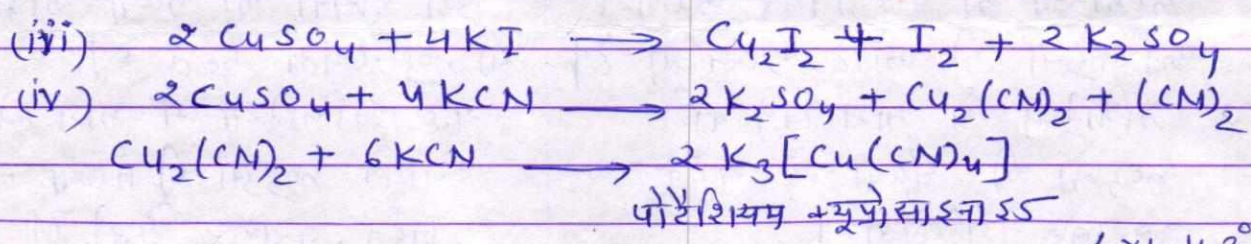 (iii) 2 CuSO₄ + 4KI ⟶ Cu₂I₂ + I₂ + 2 K₂SO₄
(iv) 2CuSO₄ + 4KCN ⟶ 2K₂SO₄ + Cu₂(CN)₂ + (CN)₂
Cu₂(CN)₂ + 6KCN ⟶ 2 K₃[Cu(CN)₄]
पोटैशियम क्यूप्रोसाइनाइड